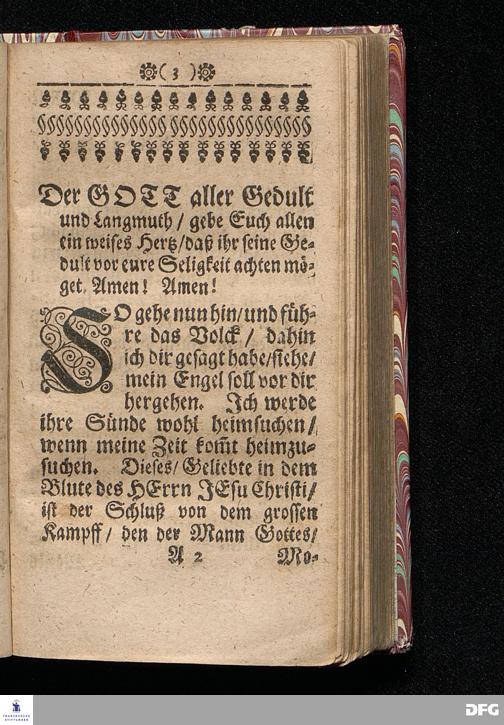 ( 3 )
Der GOTT aller Gedult
und Langmuth / gebe Euch allen
ein weises Hertz / daß ihr seine Ge-
dult vor eure Seligkeit achten mö-
get. Amen! Amen!
SO gehe nun hin / und füh-
re das Volck / dahin
ich dir gesagt habe / siehe /
mein Engel soll vor dir
hergehen. Ich werde
ihre Sünde wohl heimsuchen /
wenn meine Zeit kom̃t heimzu-
suchen. Dieses / Geliebte in dem
Blute des HErrn JEsu Christi /
ist der Schluß von dem grossen
Kampff / den der Mann Gottes /
A 2 Mo-
FRANCKESCHE
STIFTUNGEN
DFG